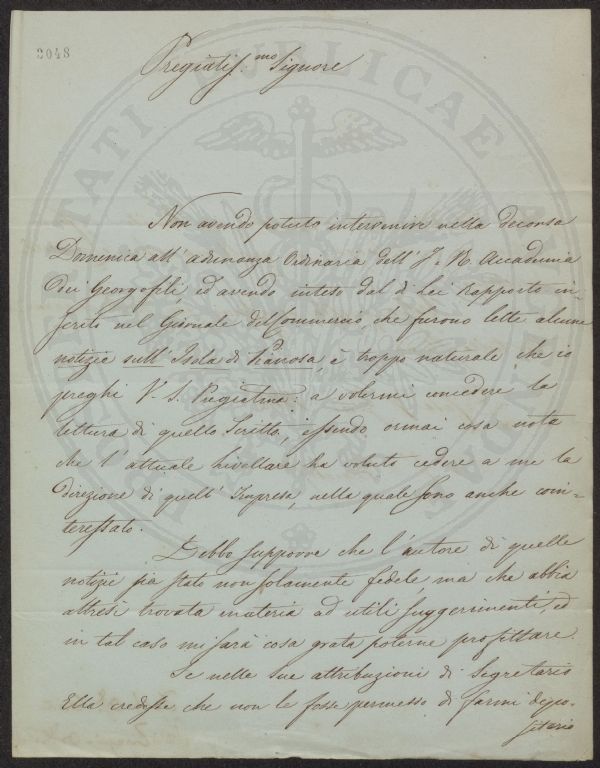 2048
Pregiatiss.mo Signore
Non avendo potuto intervenire nella decorsa
Domenica all'adunanza Ordinaria dell'J. e R. Accademia
Dei Georgofili, ed avendo inteso dal di Lei Rapporto in-
serito nel Giornale del Commercio, che furono lette alcune
notizie sull'Isola di Pianosa, è troppo naturale che io
preghi V. S. Pregiatma: a volermi concedere la
lettura di quello Scritto, essendo ormai cosa nota
che l'attuale livellare ha voluto cedere a me la
direzione di quell'Impresa, nella quale sono anche coin-
teressato.
Debbo supporre che l'autore di quelle
notizie sia stato non solamente fedele, ma che abbia
altresì trovata materia ad utili suggerimenti, ed
in tal caso mi sarà cosa grata poterne profittare.
Se nelle sue attribuzioni di Segretario
Ella credesse che non le fosse permesso di farmi depo-
sitario